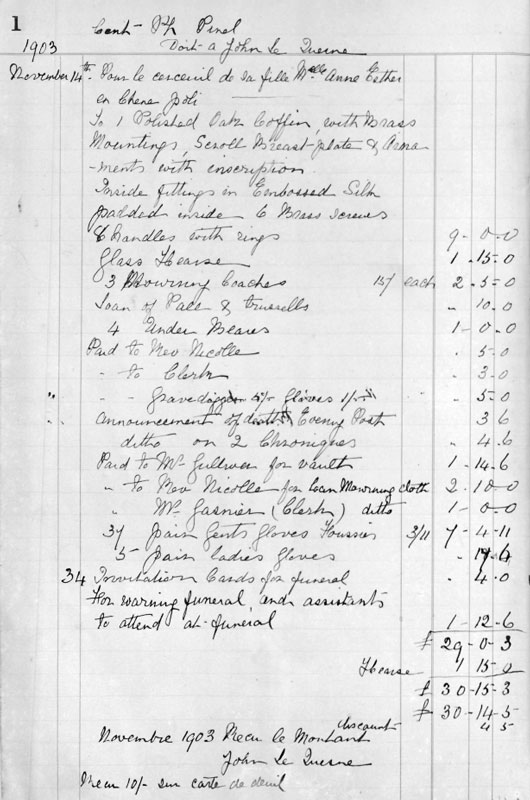 1
Cent- Ph Pinel
1903 Doit a John Le Quesne
November 14th Pour le cerceuil de sa fille Melle Anne Esther
en Chene poli
To 1 Polished Oak Coffin, with Brass
Mountings, Scroll Breast-plate & Orna
-ments with inscription
Inside fittings in Embossed Silk
padded inside 6 Brass screws
6 handles with rings 9-0-0
Glass Hearse 1-15-0
3 Mowrning Coaches 15/ each 2-5-0
Loan of Pall & trussells " 10-0
4 Under Beares 1-0-0
Paid to Rev Nicolle " 5-0
" to Clerk " 3-0
" " " Gravedigger 4/- Gloves 1/- " 5-0
" Announcement of death Evening Post 3 6
ditto on 2 Chroniques " 4-6
Paid to Mr Gulliver for vault 1-14-6
" to Rev Nicolle for loan Mowrning cloth 2-10-0
" Mr Gasnier (Clerk) ditto 1-0-0
37 pair Gents Gloves 3/11 7-4-11
5 pair ladies Gloves
34 Invitation Cards for funeral " 4-0
For warning funeral, and assistants
to attend at funeral 1-12-6
£ 29-0-3
Hearse 1 15-0
£ 30-15-3
£ 30-14-5
discount 4 5
Novembre 1903 Recu le Montant
John Le Quesne
Recu 10/- sur carte de deuil